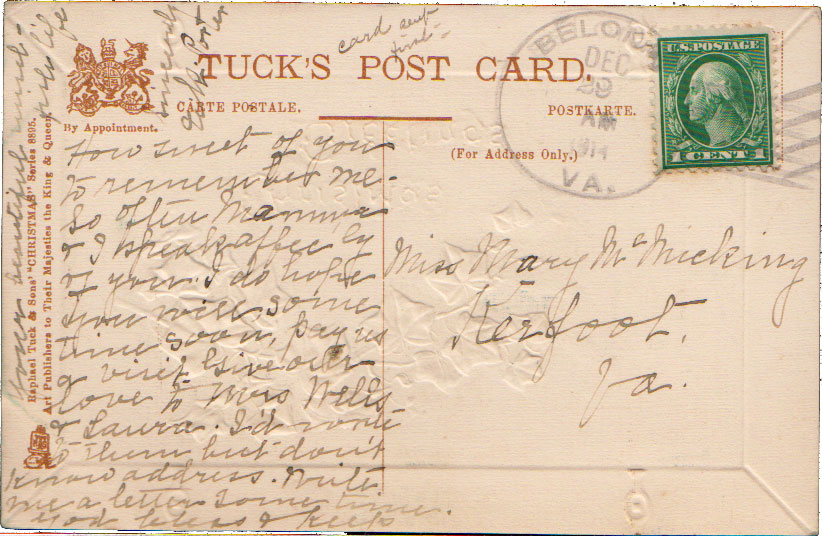 card sent
first -
TUCK'S POST CARD.
CARTE POSTALE.
POSTKARTE.
By Appointment.
(For Address Only.)
U.S. POSTAGE
1 CENT 1
DEC
29
AM
1914
VA.
Raphael Tuck & Sons' "CHRISTMAS" Series 8895.
Art Publishers to Their Majesties the King & Queen.
How sweet of you
to remember me.
So often Mamma
& I speak affec'ly
of you. I do hope
you will, some
time soon, pay us
a visit. Give our
love to Mrs Wells
& Laura. I'd write
to them but don't
know address. Write
me a letter some time.
God bless & keep
your beautiful
life
Sincerely
Porter
Miss Mary McMicking
Kerfoot,
Va.